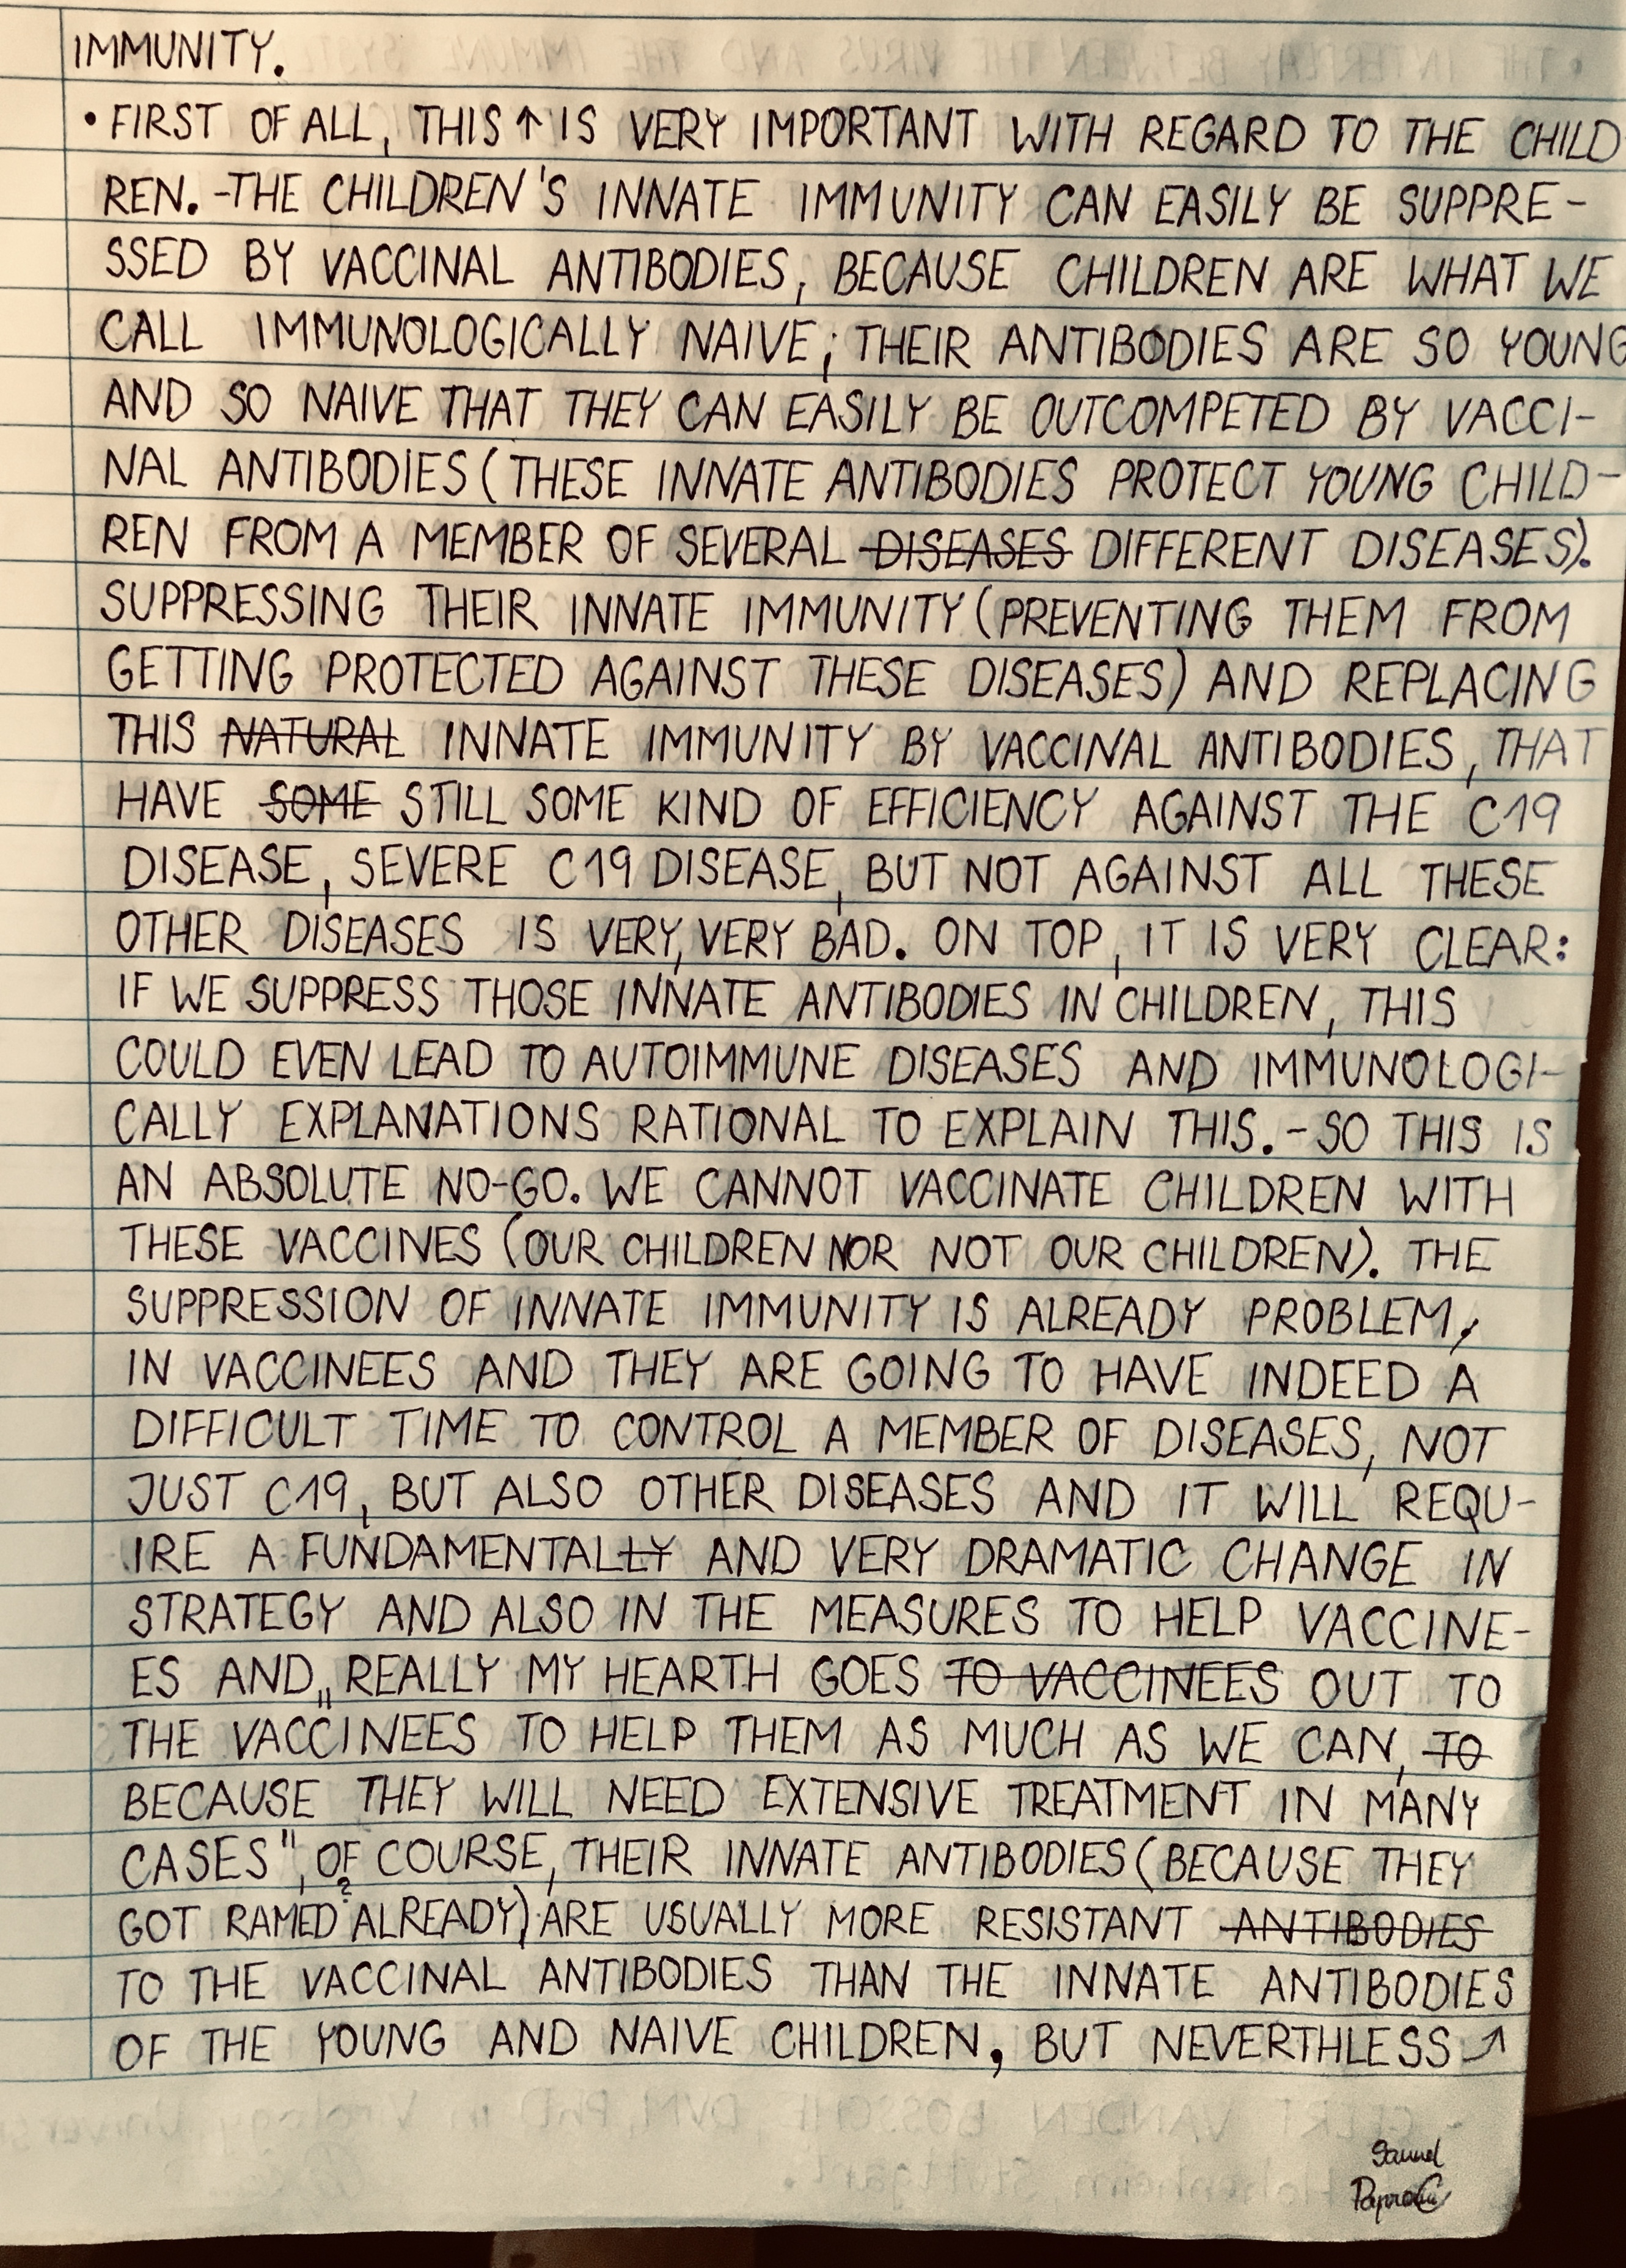 IMMUNITY.
• FIRST OF ALL, THIS ↑ IS VERY IMPORTANT WITH REGARD TO THE CHILD
REN. -THE CHILDREN'S INNATE IMMUNITY CAN EASILY BE SUPPRE-
SSED BY VACCINAL ANTIBODIES, BECAUSE CHILDREN ARE WHAT WE
CALL IMMUNOLOGICALLY NAIVE; THEIR ANTIBODIES ARE SO YOUNG
AND SO NAIVE THAT THEY CAN EASILY BE OUTCOMPETED BY VACCI-
NAL ANTIBODIES (THESE INNATE ANTIBODIES PROTECT YOUNG CHILD-
REN FROM A MEMBER OF SEVERAL DISEASES DIFFERENT DISEASES).
SUPPRESSING THEIR INNATE IMMUNITY (PREVENTING THEM FROM
GETTING PROTECTED AGAINST THESE DISEASES) AND REPLACING
THIS NATURAL INNATE IMMUNITY BY VACCINAL ANTIBODIES, THAT
HAVE SOME STILL SOME KIND OF EFFICIENCY AGAINST THE C19
DISEASE, SEVERE C19 DISEASE, BUT NOT AGAINST ALL THESE
OTHER DISEASES IS VERY, VERY BAD. ON TOP, IT IS VERY CLEAR:
IF WE SUPPRESS THOSE INNATE ANTIBODIES IN CHILDREN, THIS
COULD EVEN LEAD TO AUTOIMMUNE DISEASES AND IMMUNOLOGI-
CALLY EXPLANATIONS RATIONAL TO EXPLAIN THIS. - SO THIS IS
AN ABSOLUTE NO-GO. WE CANNOT VACCINATE CHILDREN WITH
THESE VACCINES (OUR CHILDREN NOR NOT OUR CHILDREN). THE
SUPPRESSION OF INNATE IMMUNITY IS ALREADY PROBLEM,
IN VACCINEES AND THEY ARE GOING TO HAVE INDEED A
DIFFICULT TIME TO CONTROL A MEMBER OF DISEASES, NOT
JUST C19, BUT ALSO OTHER DISEASES AND IT WILL REQU-
IRE A FUNDAMENTALLY AND VERY DRAMATIC CHANGE IN
STRATEGY AND ALSO IN THE MEASURES TO HELP VACCINE-
ES AND „REALLY MY HEARTH GOES TO VACCINEES OUT TO
THE VACCINEES TO HELP THEM AS MUCH AS WE CAN, TO
BECAUSE THEY WILL NEED EXTENSIVE TREATMENT IN MANY
CASES", OF COURSE, THEIR INNATE ANTIBODIES (BECAUSE THEY
GOT RAMED ? ALREADY) ARE USUALLY MORE RESISTANT ANTIBODIES
TO THE VACCINAL ANTIBODIES THAN THE INNATE ANTIBODIES
OF THE YOUNG AND NAIVE CHILDREN, BUT NEVERTHLESS ↗
Samuel